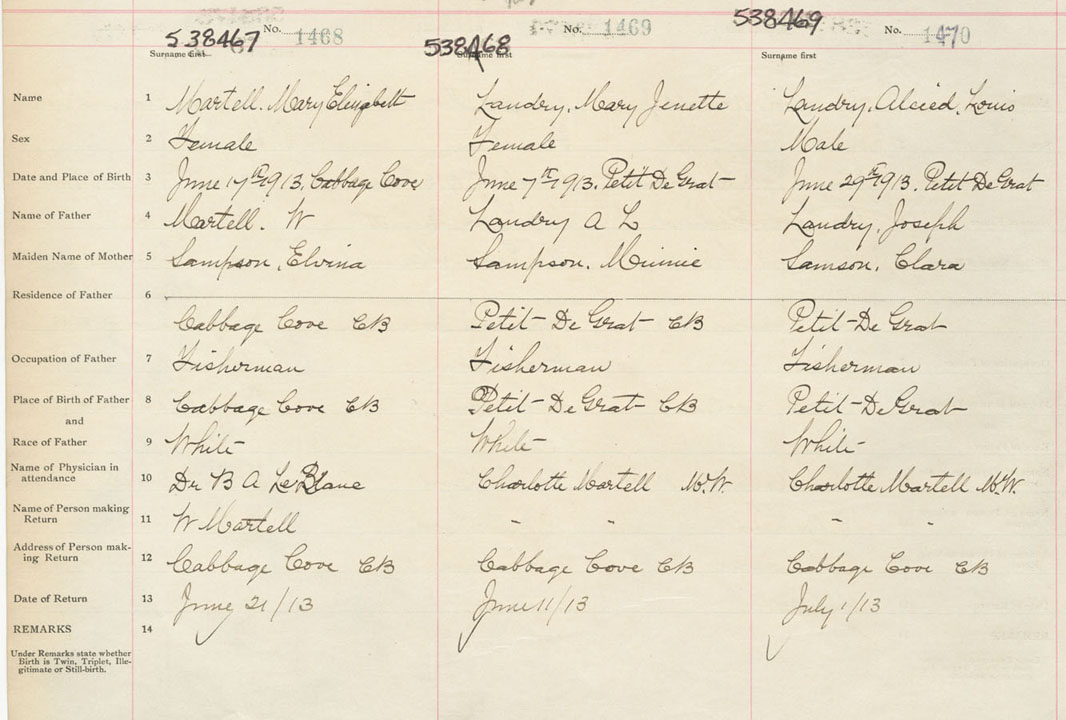 538467 No. 1468 538468 No. 1469 538469 No. 1470
Surname first Surname first Surname first
Name 1 Martell. Mary Elizabett Landry. Mary Jenette Landry. Alcied. Louis
Sex 2 Female Female Male
Date and Place of Birth 3 June 17th 1913. Cabbage Cove June 7th 1913. Petit De Grat June 29th 1913. Petit De Grat
Name of Father 4 Martell. W Landry A L Landry. Joseph
Maiden Name of Mother 5 Sampson. Elvina Sampson. Minnie Samson. Clara
Residence of Father 6
Cabbage Cove CB Petit-De Grat CB Petit-De Grat
Occupation of Father 7 Fisherman Fisherman Fisherman
Place of Birth of Father 8 Cabbage Cove CB Petit-De Grat CB Petit-De Grat
and
Race of Father 9 White White White
Name of Physician in
attendance 10 Dr B A LeBlanc Charlotte Martell M.W. Charlotte Martell M.W.
Name of Person making
Return 11 W Martell " " " "
Address of Person mak-
ing Return 12 Cabbage Cove CB Cabbage Cove CB Cabbage Cove CB
Date of Return 13 June 21/13 June 11/13 July 1/13
REMARKS 14
Under Remarks state whether
Birth is Twin, Triplet, Ille-
gitimate or Still-birth.